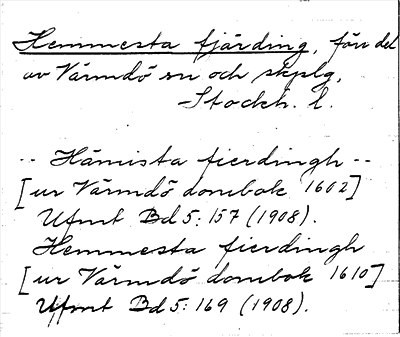 Hemmesta fjärding, förr del
av Värmdö sn och skplg,
Stockh. l.
-- Hämista fierdingh --
[ur Värmdö dombok 1602]
Ufmt Bd 5: 157 (1908).
Hemmesta fierdingh
[ur Värmdö dombok 1610]
Ufmt Bd 5: 169 (1908).